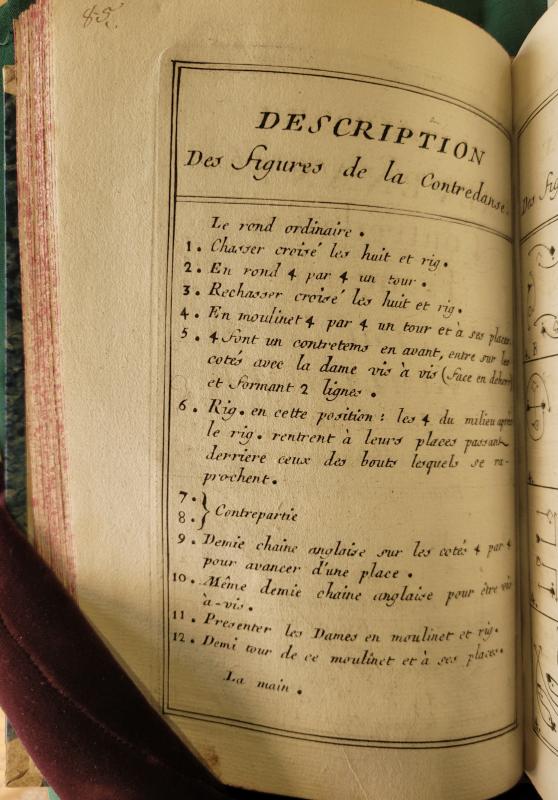 85.
DESCRIPTION
Des figures de la Contredanse.
Le rond ordinaire.
1. Chasser croisé les huit et rig.
2. En rond 4 par 4 un tour.
3. Rechasser croisé les huit et rig.
4. En moulinet 4 par 4 un tour et à ses places.
5. 4 font un contretems en avant, entre sur les
cotés avec la dame vis à vis (face en dehors)
et formant 2 lignes.
6. Rig. en cette position : les 4 du milieu après
le rig. rentrent à leurs places passant
derriere ceux des bouts lesquels se ra-
prochent.
7.
8. } Contrepartie
9. Demie chaine anglaise sur les cotés 4 par 4
pour avancer d'une place.
10. Même demie chaine anglaise pour être vis
à-vis.
11. Presenter les Dames en moulinet et rig.
12. Demi tour de ce moulinet et à ses places.
La main.
Des fig